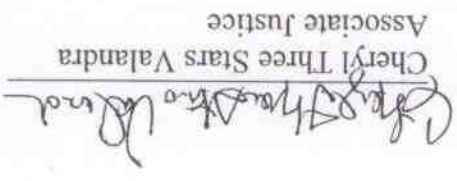 Cheryl Three Stars Valandra
Cheryl Three Stars Valandra
Associate Justice